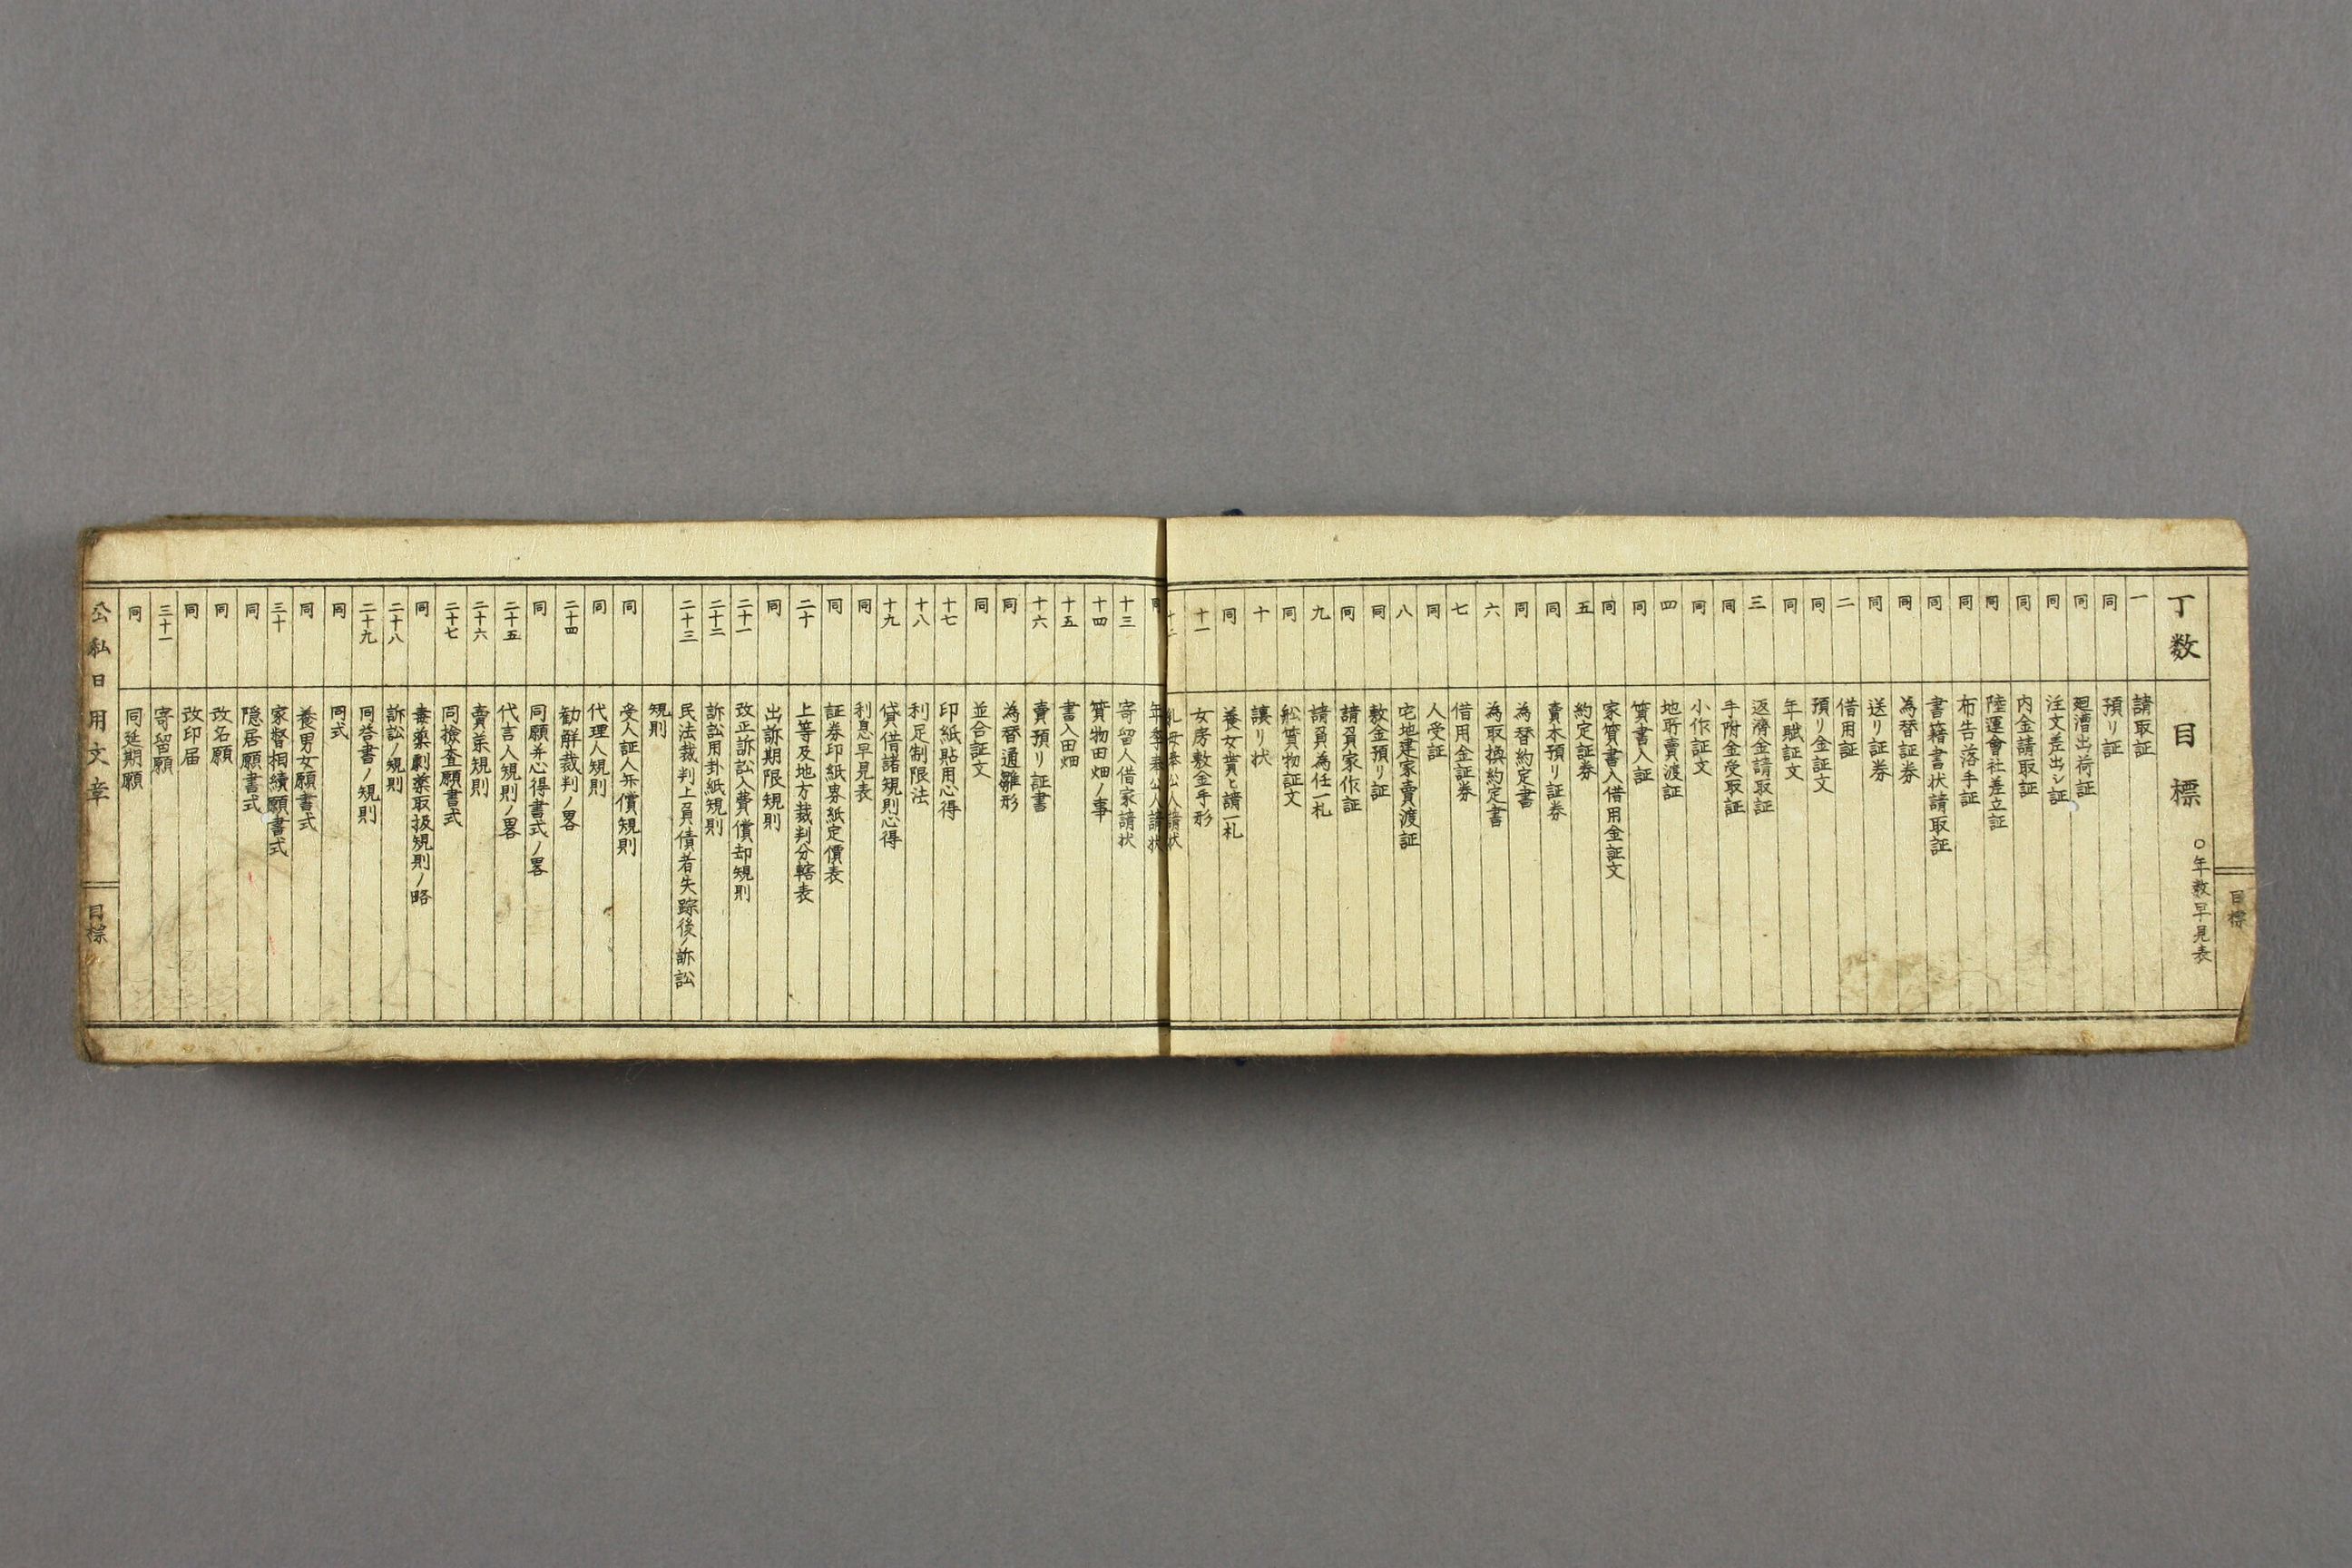 目標
〇年数早見表
丁数 目標
一 請取証
同 預リ証
同 廻漕出シ荷証
同 注文差出シ証
同 内金請取証
同 陸運會社差立証
同 布告落手証
同 書籍書状請取証
同 為替証券
同 送リ証券
二 借用証
同 預リ金証文
同 年賦証文
三 返濟金請取証
同 手附金受取証
同 小作証文
四 地所賣渡証
同 質書入証
同 家質書入借用金証文
五 約定証券
同 賣木預リ証券
同 為替約定書
六 為取換約定書
七 借用金証券
同 人受証
八 宅地建家賣渡証
同 敷金預リ証
同 請負家作証
九 請負為任一札
同 舩質物証文
十 讓リ状
同 養女貰ヒ請一札
十一 女房敷金手形
十二 乳母奉公人請状
同 年季奉公人請状
十三 寄留人借家請状
十四 質物田畑ノ事
十五 書入田畑
十六 賣預リ証書
同 為替通雛形
同 並合証文
十七 印紙貼用心得
十八 利足制限法
十九 貸借諸規則心得
同 利息早見表
同 証券印紙界紙定價表
二十 上等及地方裁判分轄表
同 出訴期限規則
二十一 改正訴訟入費償却規則
二十二 訴訟用卦紙規則
二十三 民法裁判上負債者失踪後ノ訴訟
規則
同 受人証人弁償規則
同 代理人規則
二十四 勧解裁判ノ畧
同 同願并心得書式ノ畧
二十五 代言人規則ノ畧
二十六 賣薬規則
二十七 同撿査願書式
同 毒薬劇薬取扱規則ノ略
二十八 訴訟ノ規則
二十九 同答書ノ規則
同 同式
同 養男女願書式
三十 家督相續願書式
同 隠居願書式
同 改名願
同 改印届
三十一 寄留願
同 同延期願
公私日用文章 目標